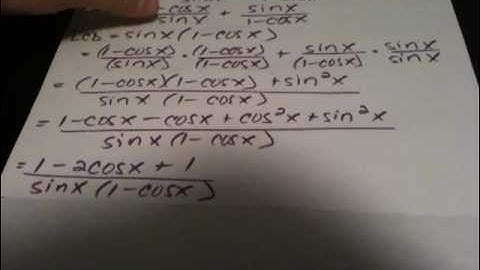 -cosx/sinx + sinx/1-cosx
LCD = sinx(1-cosx)
= (1-cosx)/(sinx) · (1-cosx)/(1-cosx) + sinx/(1-cosx) · sinx/sinx
= (1-cosx)(1-cosx) + sin²x / sinx (1-cosx)
= 1-cosx-cosx+cos²x+sin²x / sinx(1-cosx)
= 1-2cosx+1 / sinx(1-cosx)